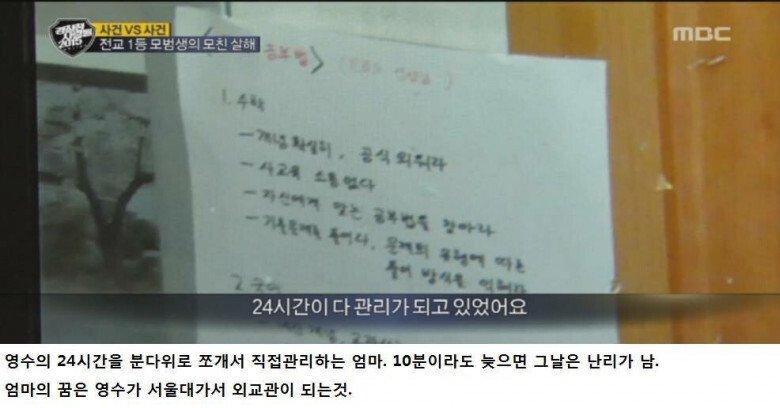 경찰청 사람들 2015
사건 VS 사건
전교 1등 모범생의 모친 살해
MBC
공부법>
1. 수학
- 개념 확실히, 공식 외워라
- 사교육 소용없다
- 자신에게 맞는 공부법을 찾아라
- 기출문제를 풀어라, 문제의 유형에 따른
풀이 방식을 익혀라
2. 국어
24시간이 다 관리가 되고 있었어요
영수의 24시간을 분다위로 쪼개서 직접관리하는 엄마. 10분이라도 늦으면 그날은 난리가 남.
엄마의 꿈은 영수가 서울대가서 외교관이 되는것.